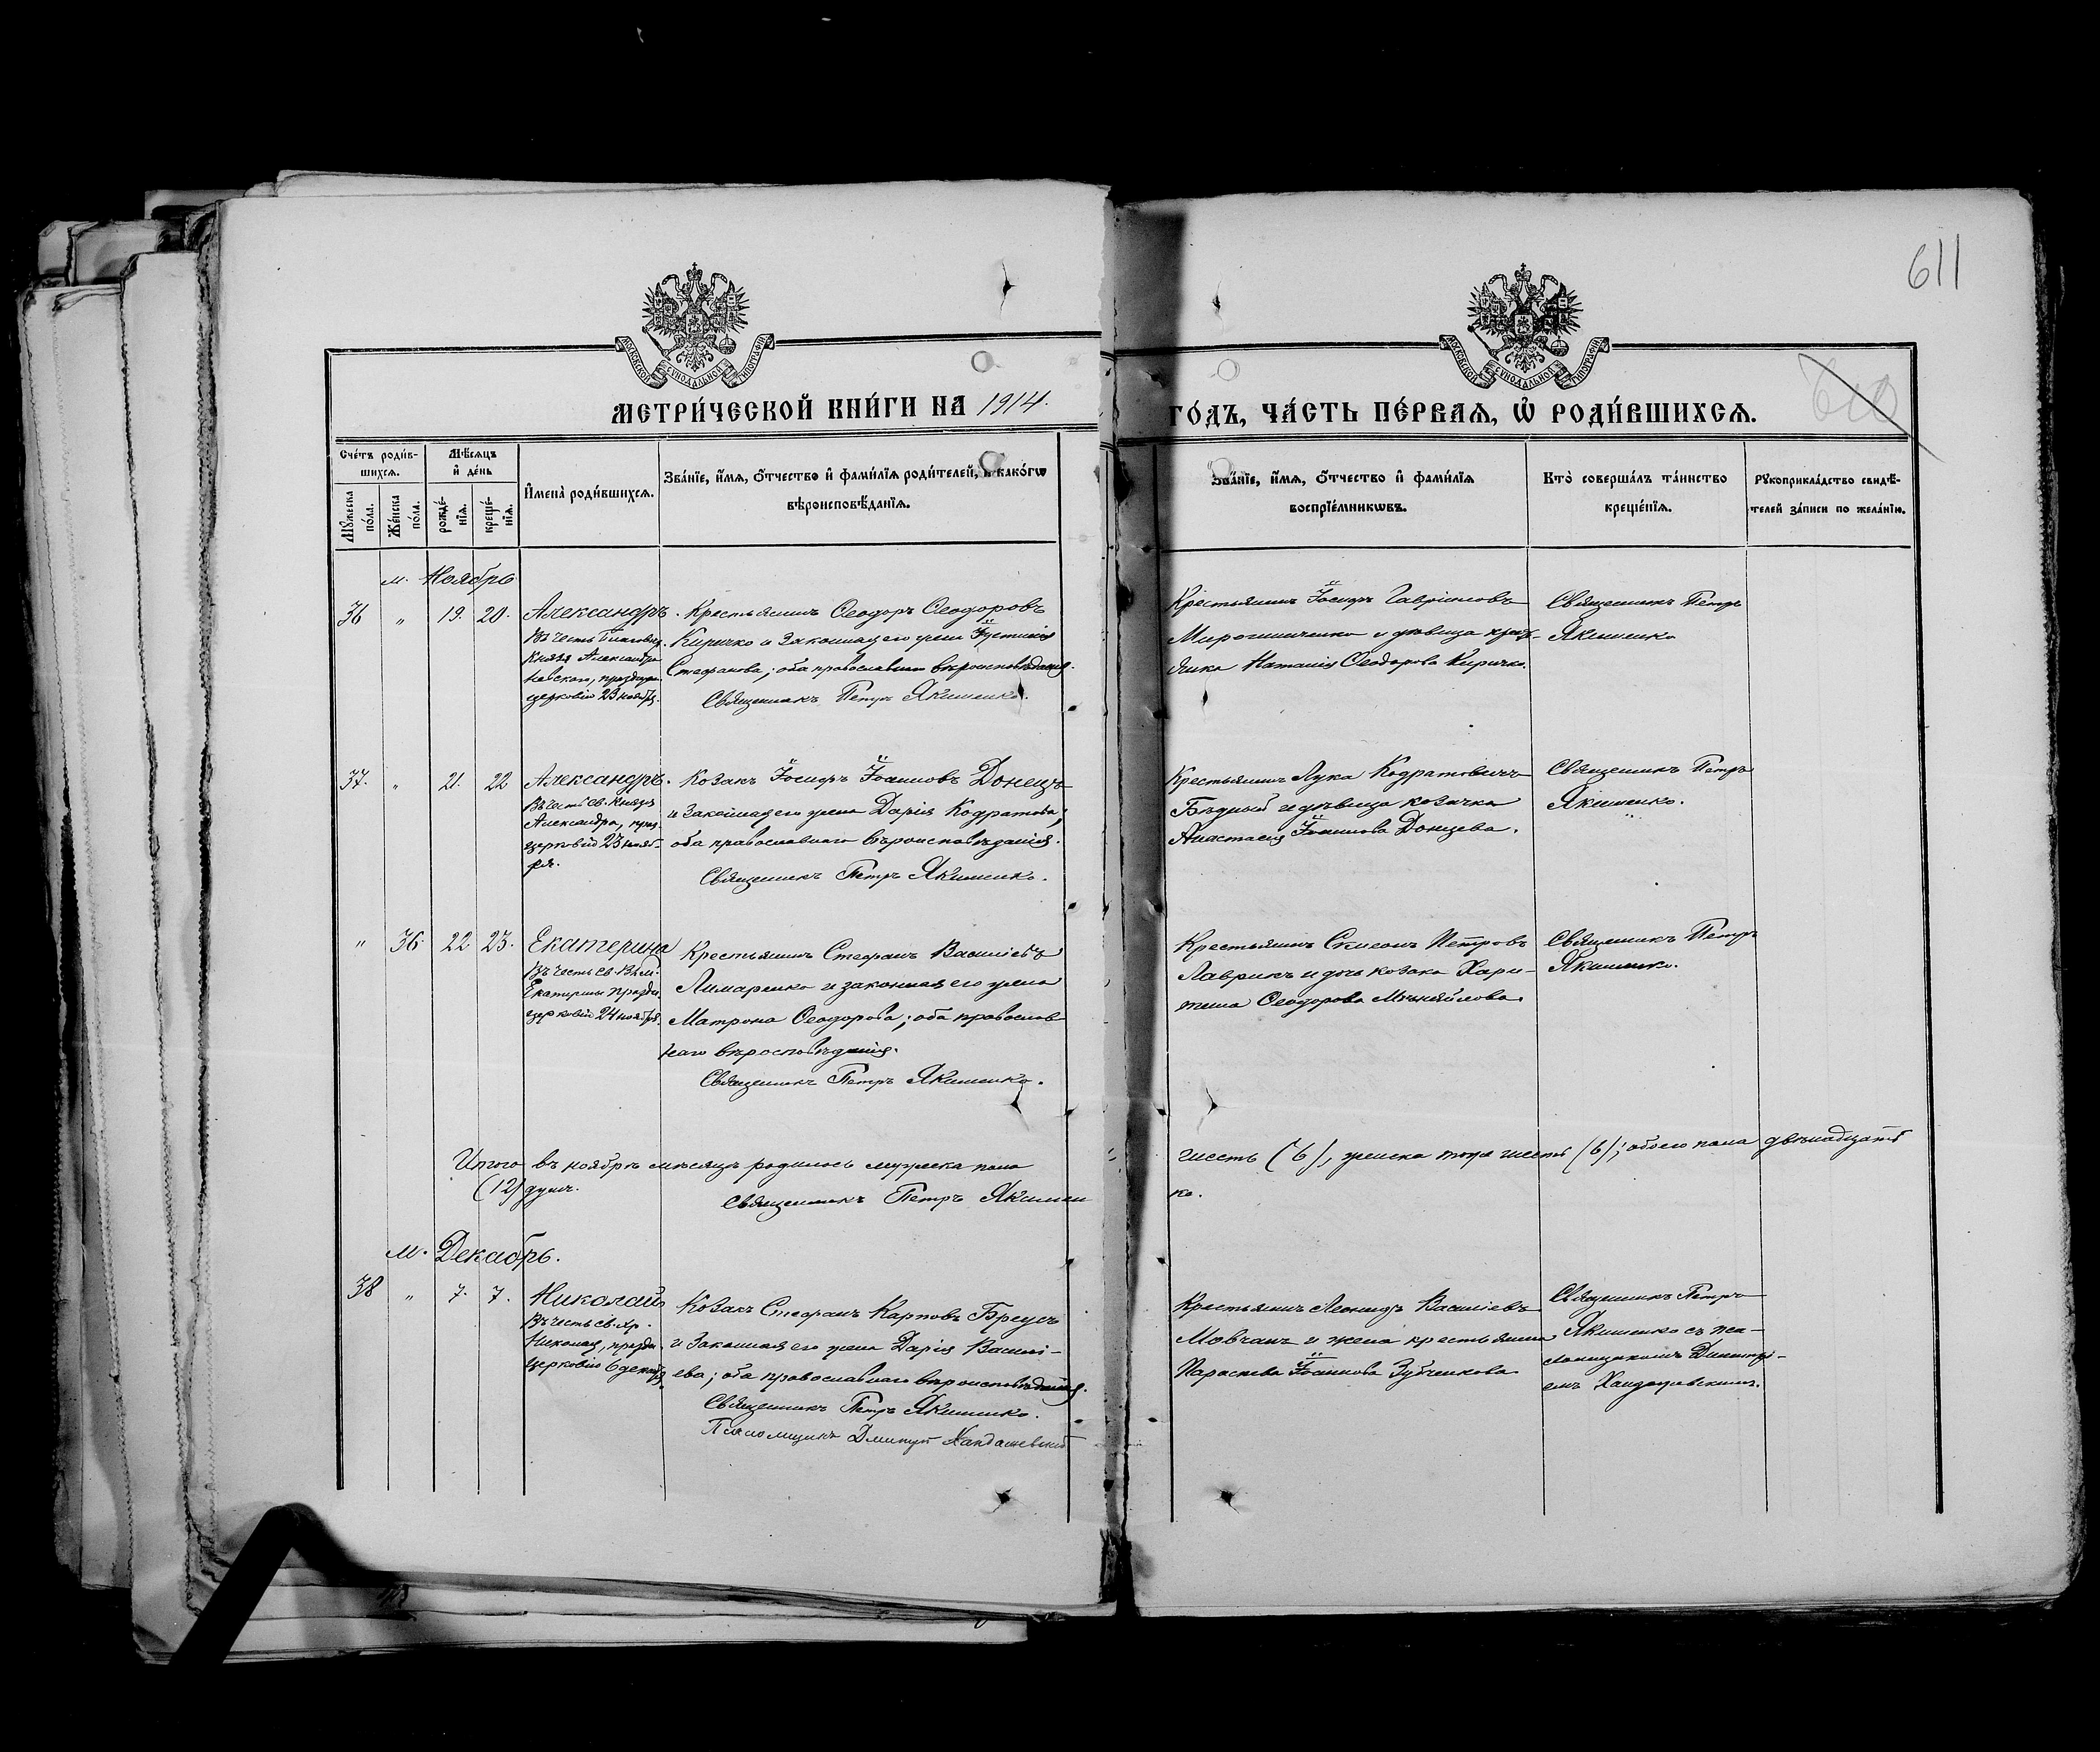 611
МОСКОВСКОЙ СѴНОДАЛЬНОЙ ТИПОГРАФІИ
МОСКОВСКОЙ СѴНОДАЛЬНОЙ ТИПОГРАФІИ
610
МЕТРИ́ЧЕСКОЙ КНИ́ГИ НА 1914.
ГО́ДЪ, ЧА́СТЬ ПЕ́РВАЯ, Ѿ РОДИ́ВШИХСЯ.
Сче́тъ роди́в-
шихся.
Мꙋжеска
по́ла.
Же́нска
по́ла.
Мѣ́сяцъ
и҆ де́нь
рожде́-
нїя.
креще́-
нїя.
И҆мена̀ роди́вшихся.
Зва́нїе, и҆́мя, ѻ҆́тчество и҆ фами́лїя роди́телей, и҆ како́гѡ
вѣроисповѣ́данїя.
Зва́нїе, и҆́мя, ѻ҆́тчество и҆ фами́лїя
воспрїе́мникѡвъ.
Кто̀ соверша́лъ та́инство
креще́нїя.
Рꙋкоприкла́дство свидѣ́-
телей за́писи по жела́нїю.
м. Ноябрь
36 " 19. 20.
Александръ.
Въ честь Благовѣр.
Князя Александра
Невскаго, праздн.
церковію 23 ноября.
Крестьянинъ Ѳеодоръ Ѳеодоровъ
Киричко и законная его жена Іустинія
Стефанова; оба православнаго вѣроисповѣданія.
Священникъ Петръ Якименко.
Крестьянинъ Іосифъ Гавріиловъ
Мирошниченко и дѣвица крест.
янка Наталія Ѳеодорова Киричко.
Священникъ Петръ
Якименко
37. " 21. 22
Александръ.
Въ честь св. Князя
Александра, праз.
церковію 23 нояб-
ря.
Козакъ Іосифъ Іоанновъ Донецъ
и законная его жена Дарія Кодратова;
оба православнаго вѣроисповѣданія.
Священникъ Петръ Якименко.
Крестьянинъ Лука Кодратовичъ
Бѣдный и дѣвица козачка
Анастасія Іоаннова Донцева.
Священникъ Петръ
Якименко.
" 36. 22 23.
Екатерина
Въ честь св. В.М.
Екатерины праздн.
церковію 24 ноября.
Крестьянинъ Стефанъ Василіевъ
Лимаренко и законная его жена
Матрона Ѳеодорова; оба православ-
наго вѣроисповѣданія.
Священникъ Петръ Якименко.
Крестьянинъ Симеонъ Петровъ
Лавринъ и дочь козака Хари-
тина Ѳеодорова
Священникъ Петръ
Якименко.
Итого въ ноябрѣ мѣсяцѣ родилось мужеска пола
шесть (6), женска тоже шесть (6); обоего пола двѣнадцать
(12) душъ.
Священникъ Петръ Якимен
ко.
м. Декабрь.
38 " 7. 7.
Николай
Въ честь св. Хр.
Николая, праздн.
церковію 6 декабря
Козакъ Стефанъ Карповъ Бреусъ
и законная его жена Дарія Васили-
ева; оба православнаго вѣроисповѣданія.
Священникъ Петръ Якименко.
Псаломщикъ Дмитрій
Крестьянинъ Леонидъ Василіевъ
Мовчанъ и жена крестьянина
Параскева Іоаннова Зубченкова
Священникъ Петръ
Якименко съ пса-
ломщикомъ Димитрі-
емъ